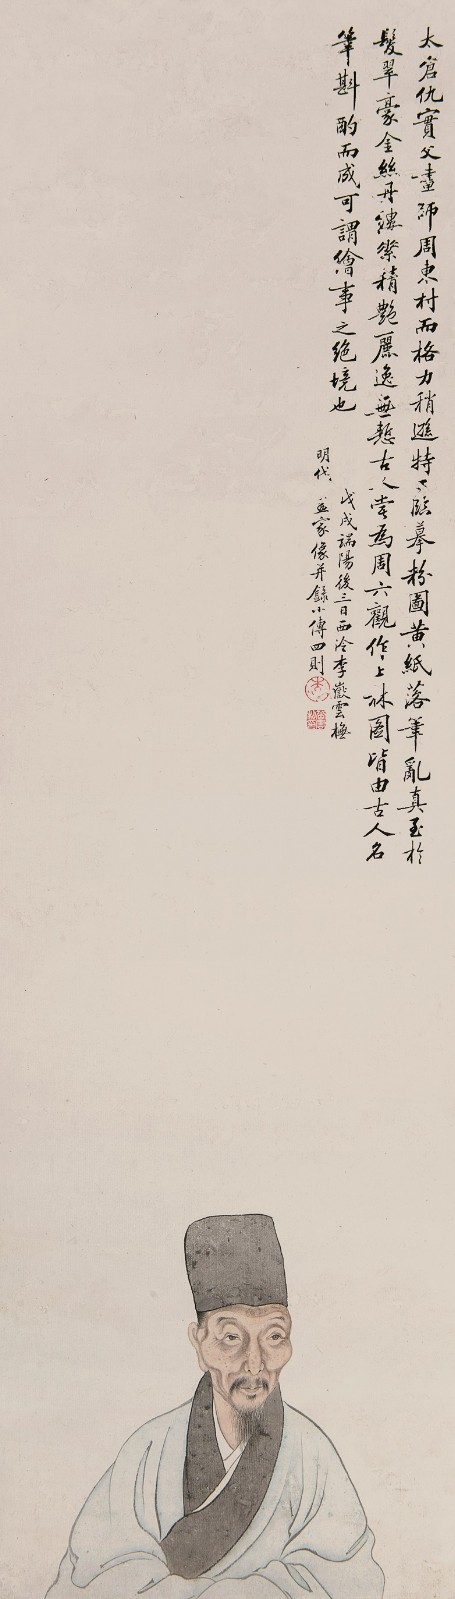 太倉仇實父畫師周東村而格力稍遜特工臨摹粉圖黃紙落筆亂真至於
髮翠豪金絲丹縷縈積艷麗逸無慙古人嘗為周六觀作上林圖皆由古人名
筆斟酌而成可謂繪事之絕境也
戊戌端陽後三日西泠李嶽雲橅
明代畫家像并錄小傳四則